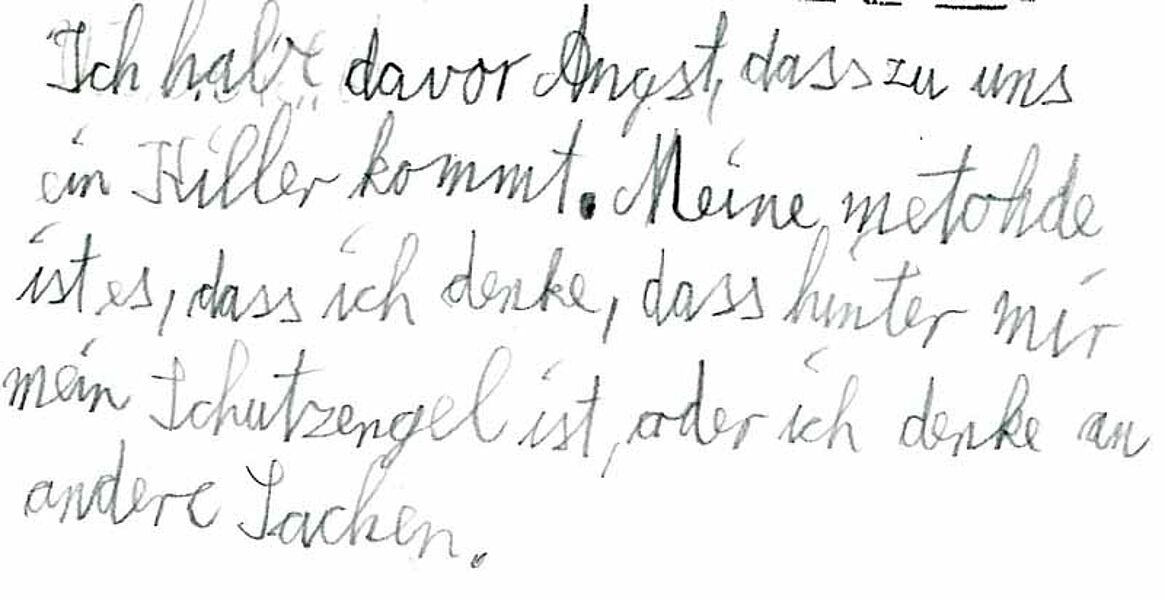 Ich habe davor Angst, dass zu uns
ein Killer kommt. Meine metohde
ist es, dass ich denke, dass hinter mir
mein Schutzengel ist, oder ich denke an
andere Sachen.